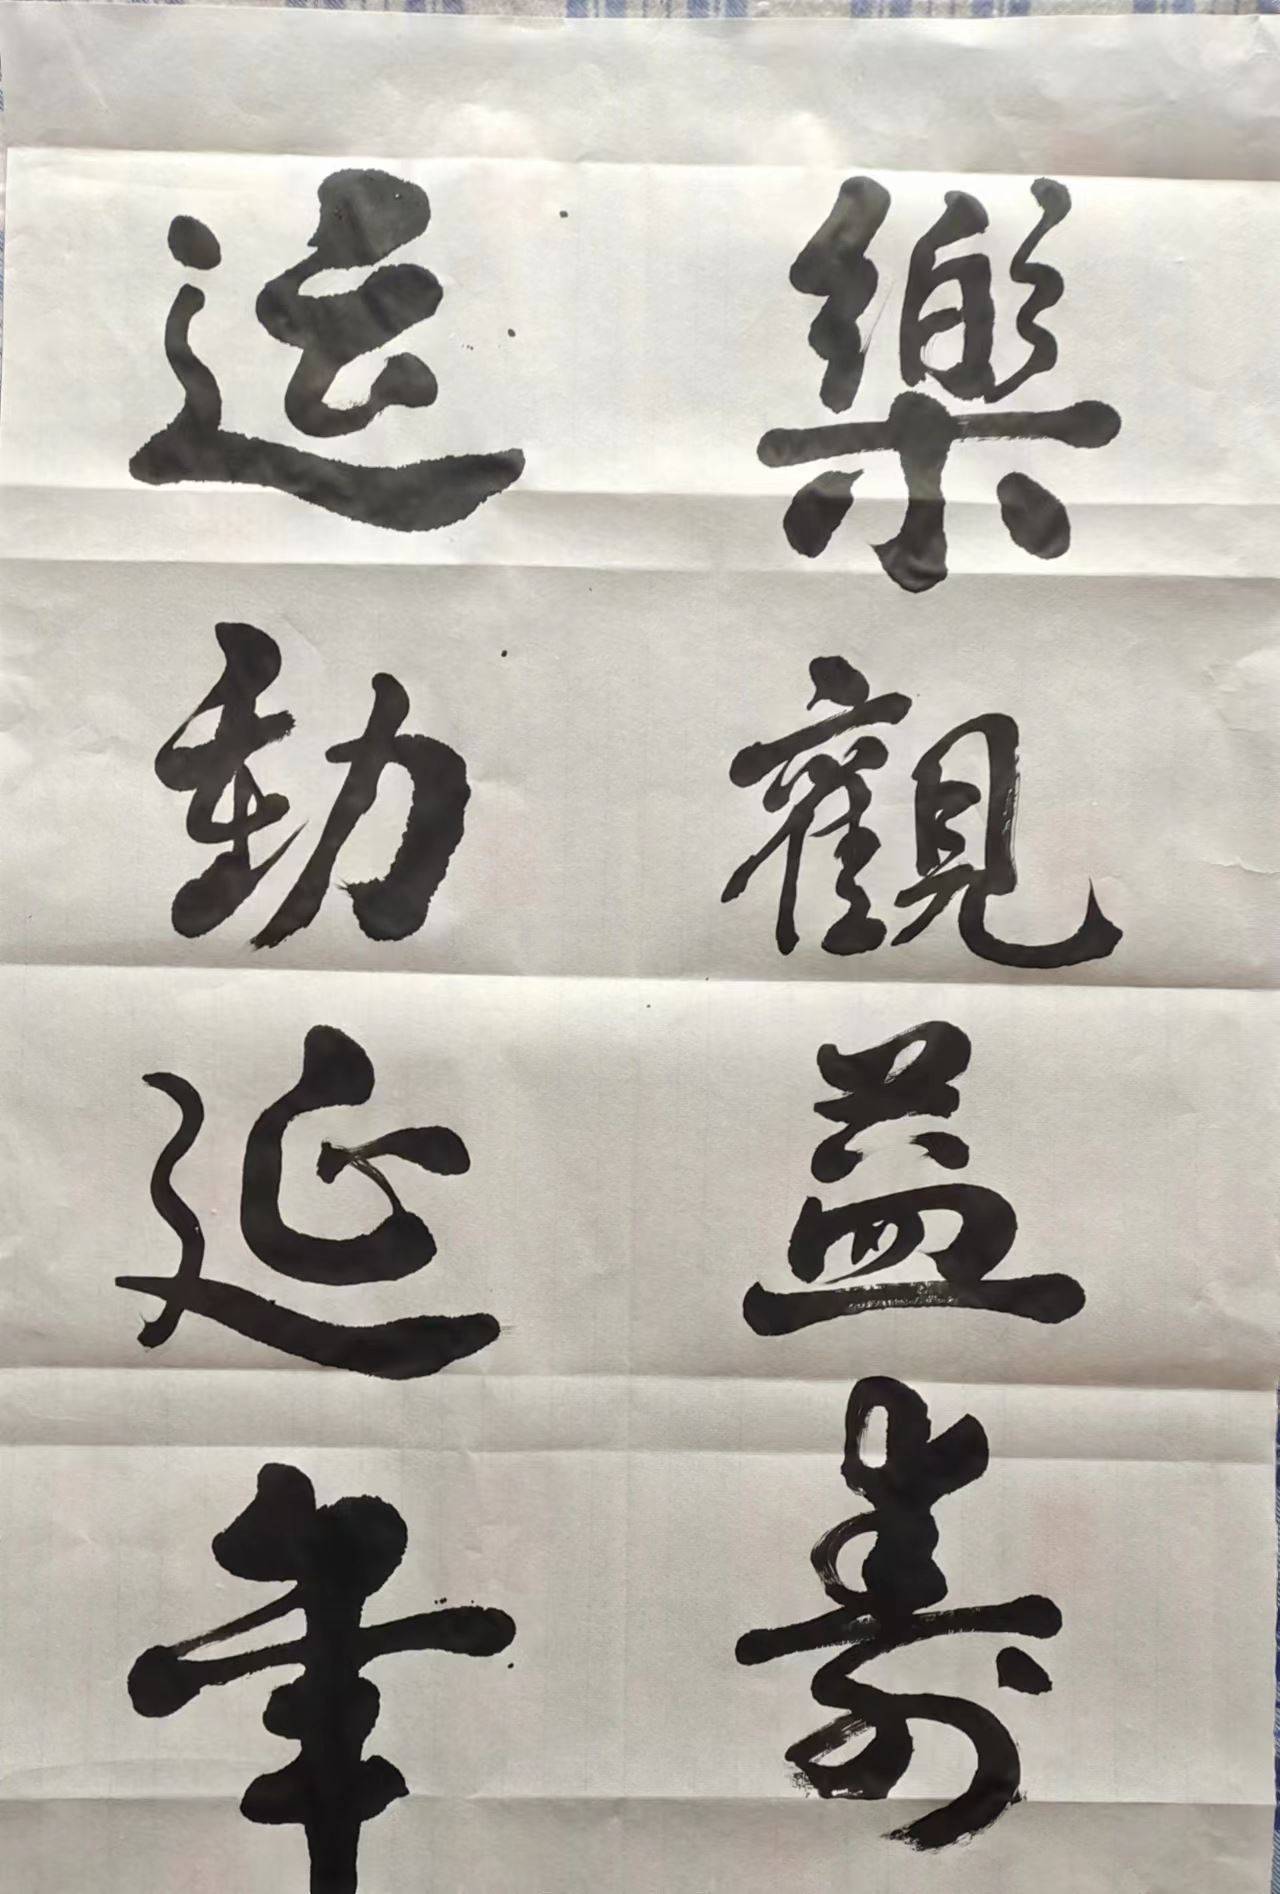 樂觀益壽
运動延年